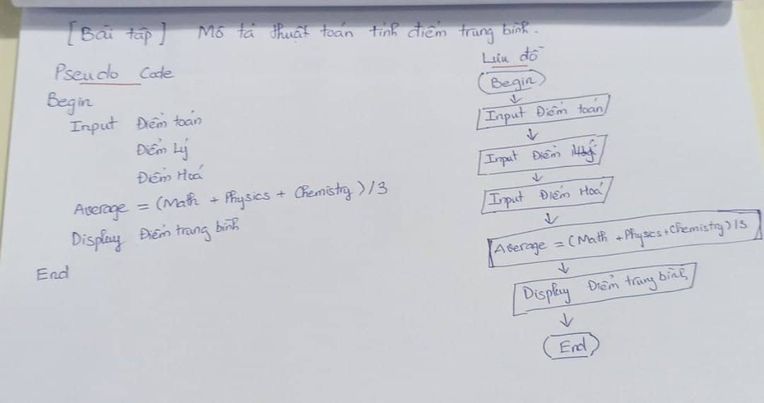 [Bài tập] Mô tả thuật toán tính điểm trung bình.
Pseudo Code
Begin
Input Điểm toán
Điểm Lý
Điểm Hoá
Average = (Math + Physics + Chemistry)/3
Display Điểm trung bình
End
Lưu đồ
Begin
Input Điểm toán
Input Điểm Lý
Input Điểm Hoá
Average = (Math + Physics + Chemistry)/3
Display Điểm trung bình
End